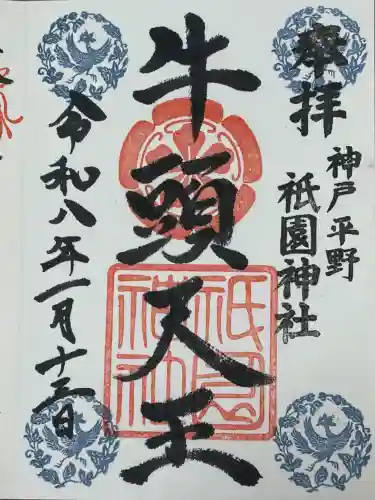 奉拝
神戸平野
祇園神社
牛頭天王
令和八年一月十三日
祇園神社